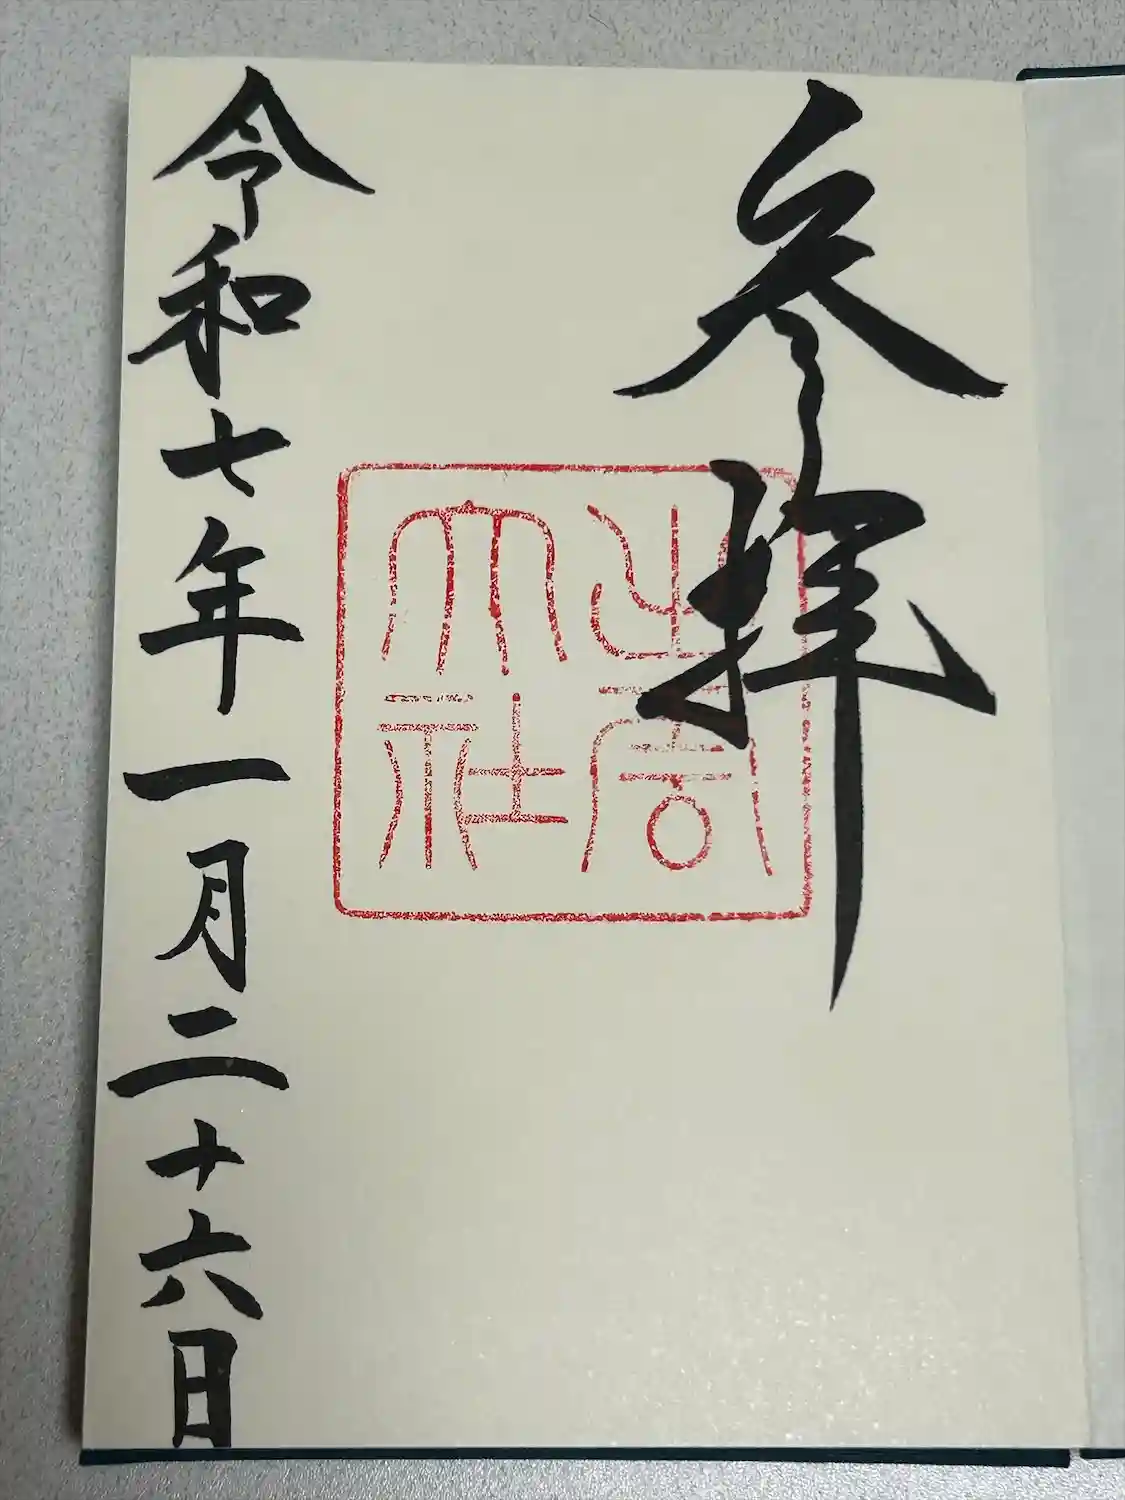 参拝
出雲
大社
令和七年一月二十六日